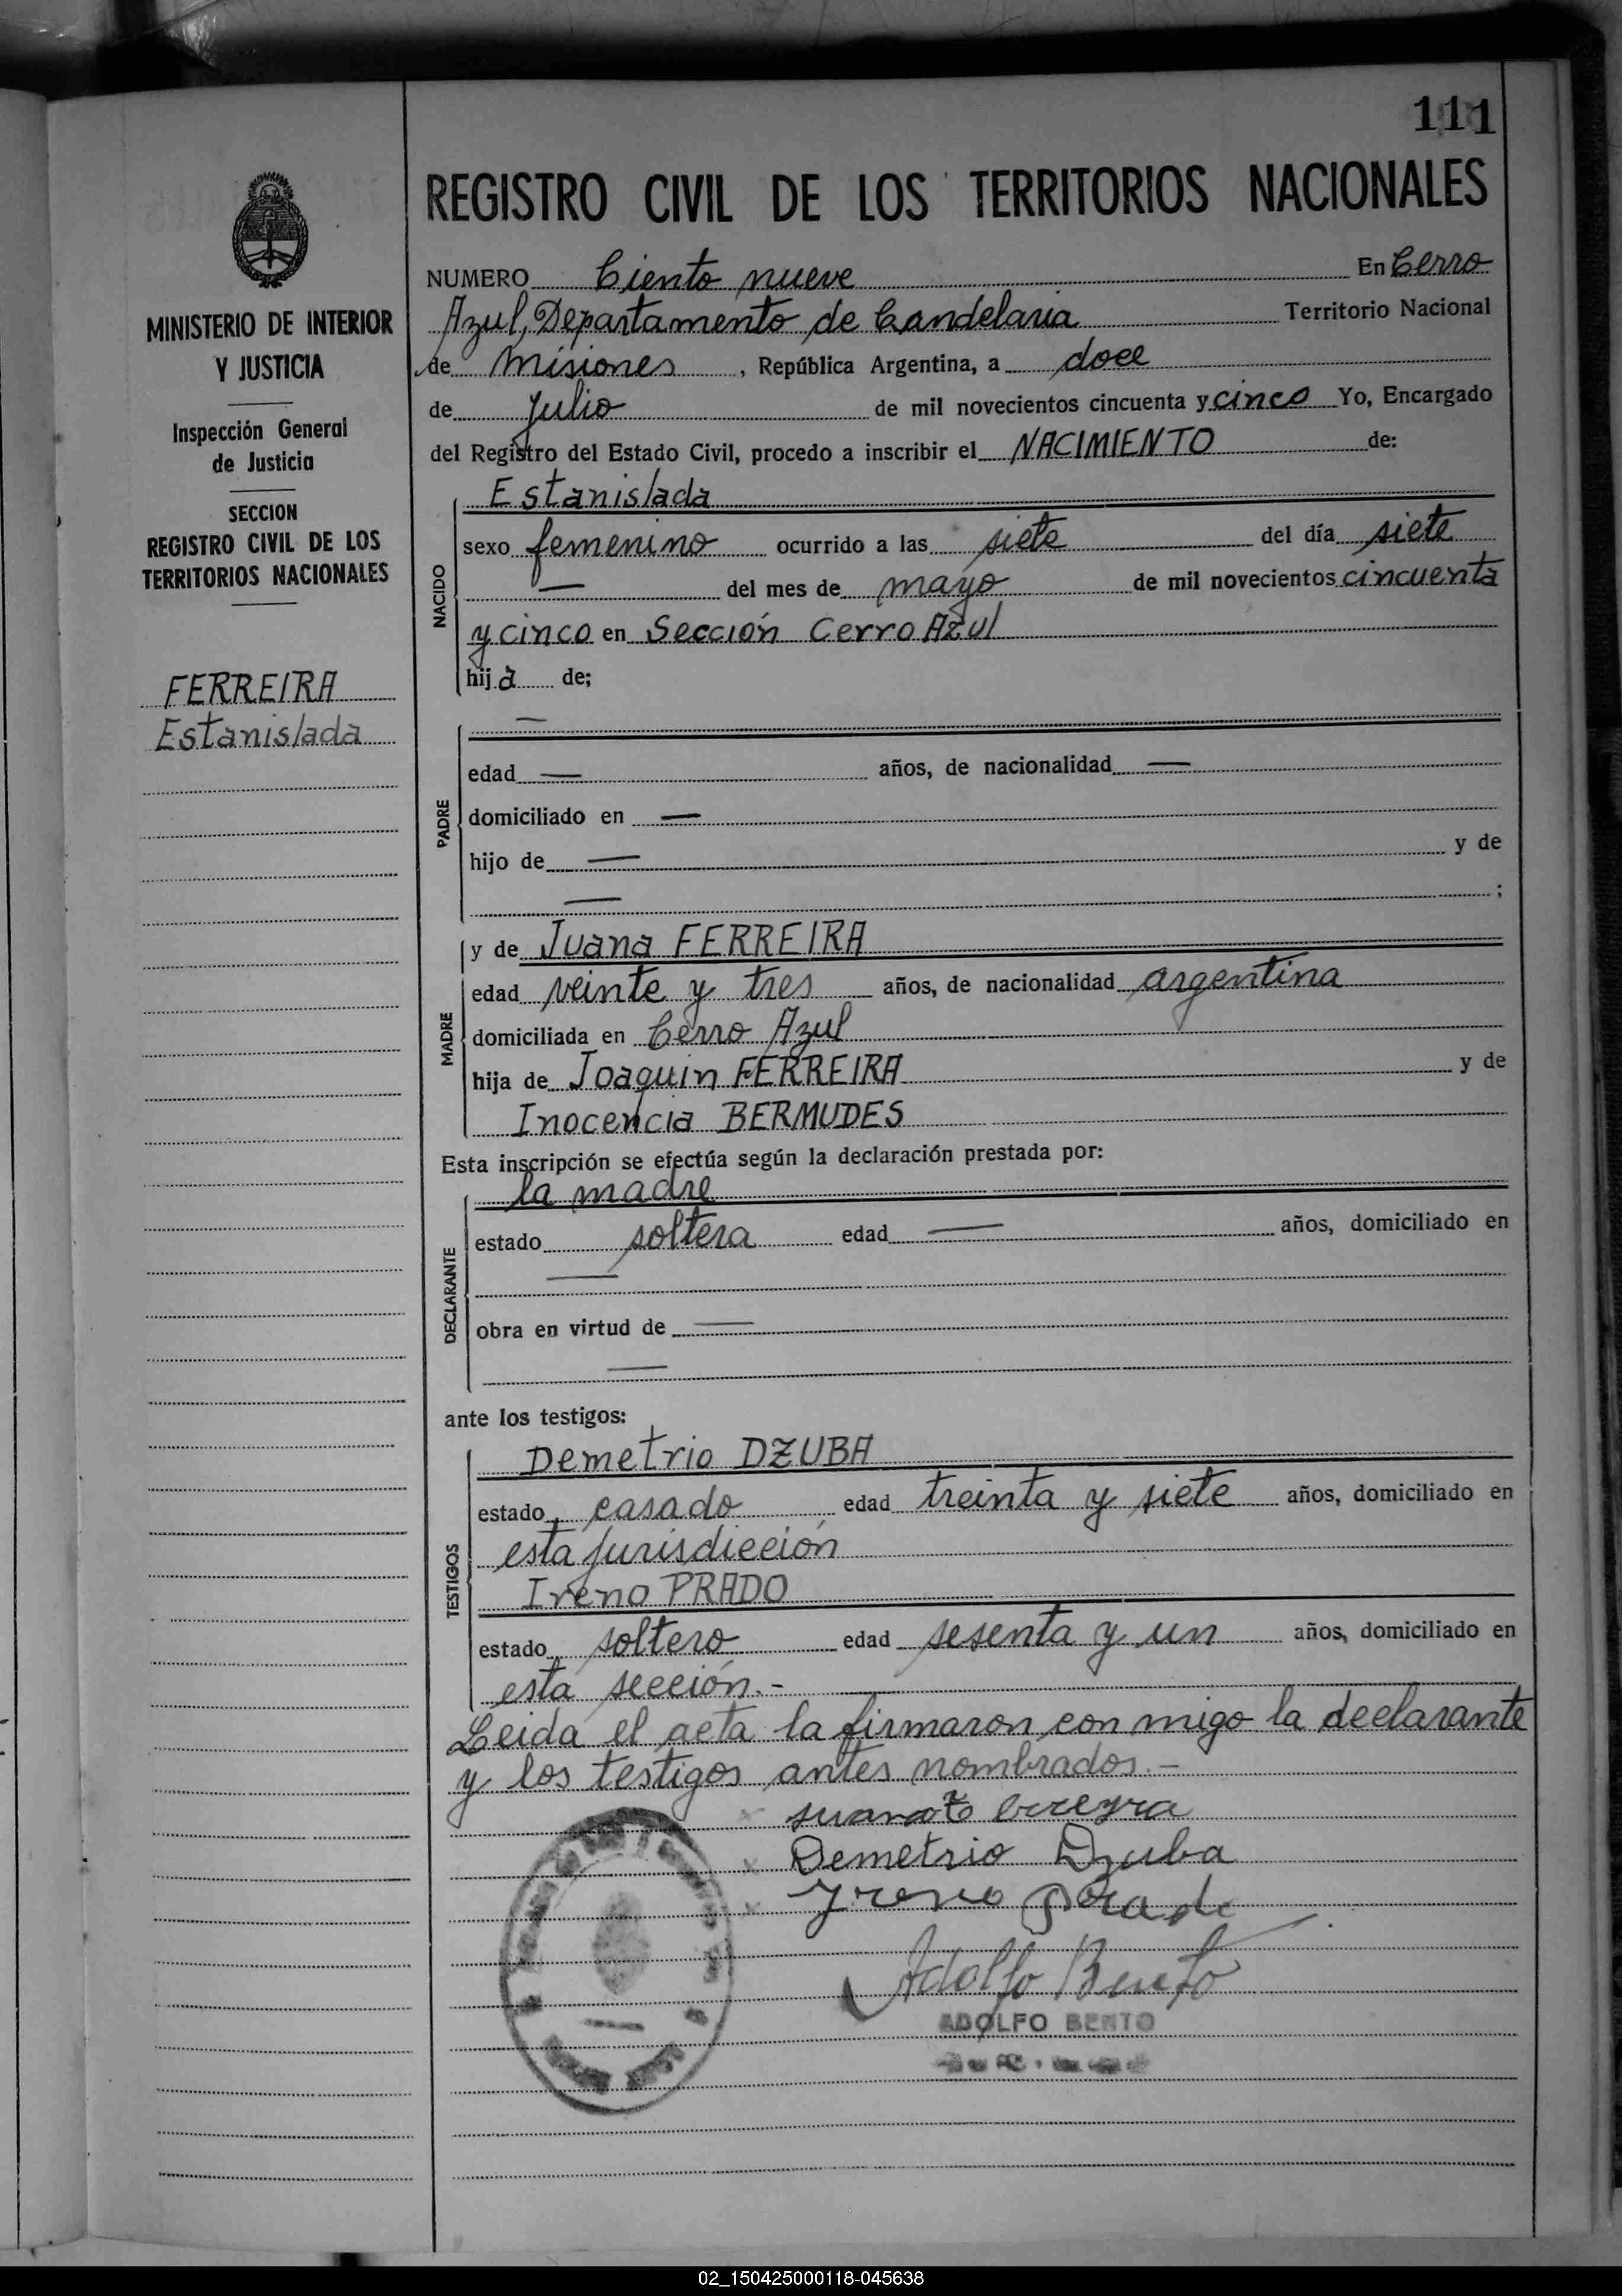 111
REGISTRO CIVIL DE LOS TERRITORIOS NACIONALES
MINISTERIO DE INTERIOR
Y JUSTICIA
Inspección General
de Justicia
SECCION
REGISTRO CIVIL DE LOS
TERRITORIOS NACIONALES
FERREIRA
Estanislada
NUMERO Ciento nueve En Cerro
Azul, Departamento de Candelaria Territorio Nacional
de Misiones, República Argentina, a doce
de Julio de mil novecientos cincuenta y cinco Yo, Encargado
del Registro del Estado Civil, procedo a inscribir el NACIMIENTO de:
NACIDO
Estanislada
sexo femenino ocurrido a las siete del día siete
— del mes de mayo de mil novecientos cincuenta
y cinco en Sección Cerro Azul
hija de;
PADRE
—
edad — años, de nacionalidad —
domiciliado en —
hijo de — y de
— ;
MADRE
y de Juana FERREIRA
edad veinte y tres años, de nacionalidad argentina
domiciliada en Cerro Azul
hija de Joaquin FERREIRA y de
Inocencia BERMUDES
Esta inscripción se efectúa según la declaración prestada por:
DECLARANTE
la madre
estado soltera edad — años, domiciliado en
—
obra en virtud de —
—
ante los testigos:
TESTIGOS
Demetrio DZUBA
estado casado edad treinta y siete años, domiciliado en
esta jurisdicción
Ireno PRADO
estado soltero edad sesenta y un años, domiciliado en
esta sección.-
Leida el acta la firmaron con migo la declarante
y los testigos antes nombrados.-
Demetrio Dzuba
Yreno Prado
Adolfo Bento
ADOLFO BENTO
02_150425000118-045638